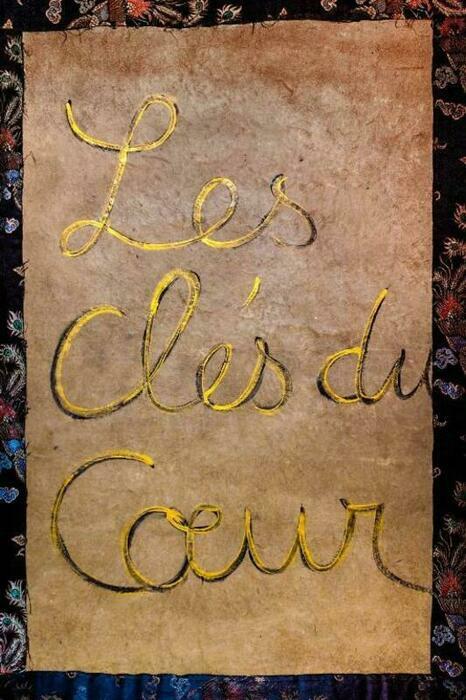 Les
Clés du
Cœur